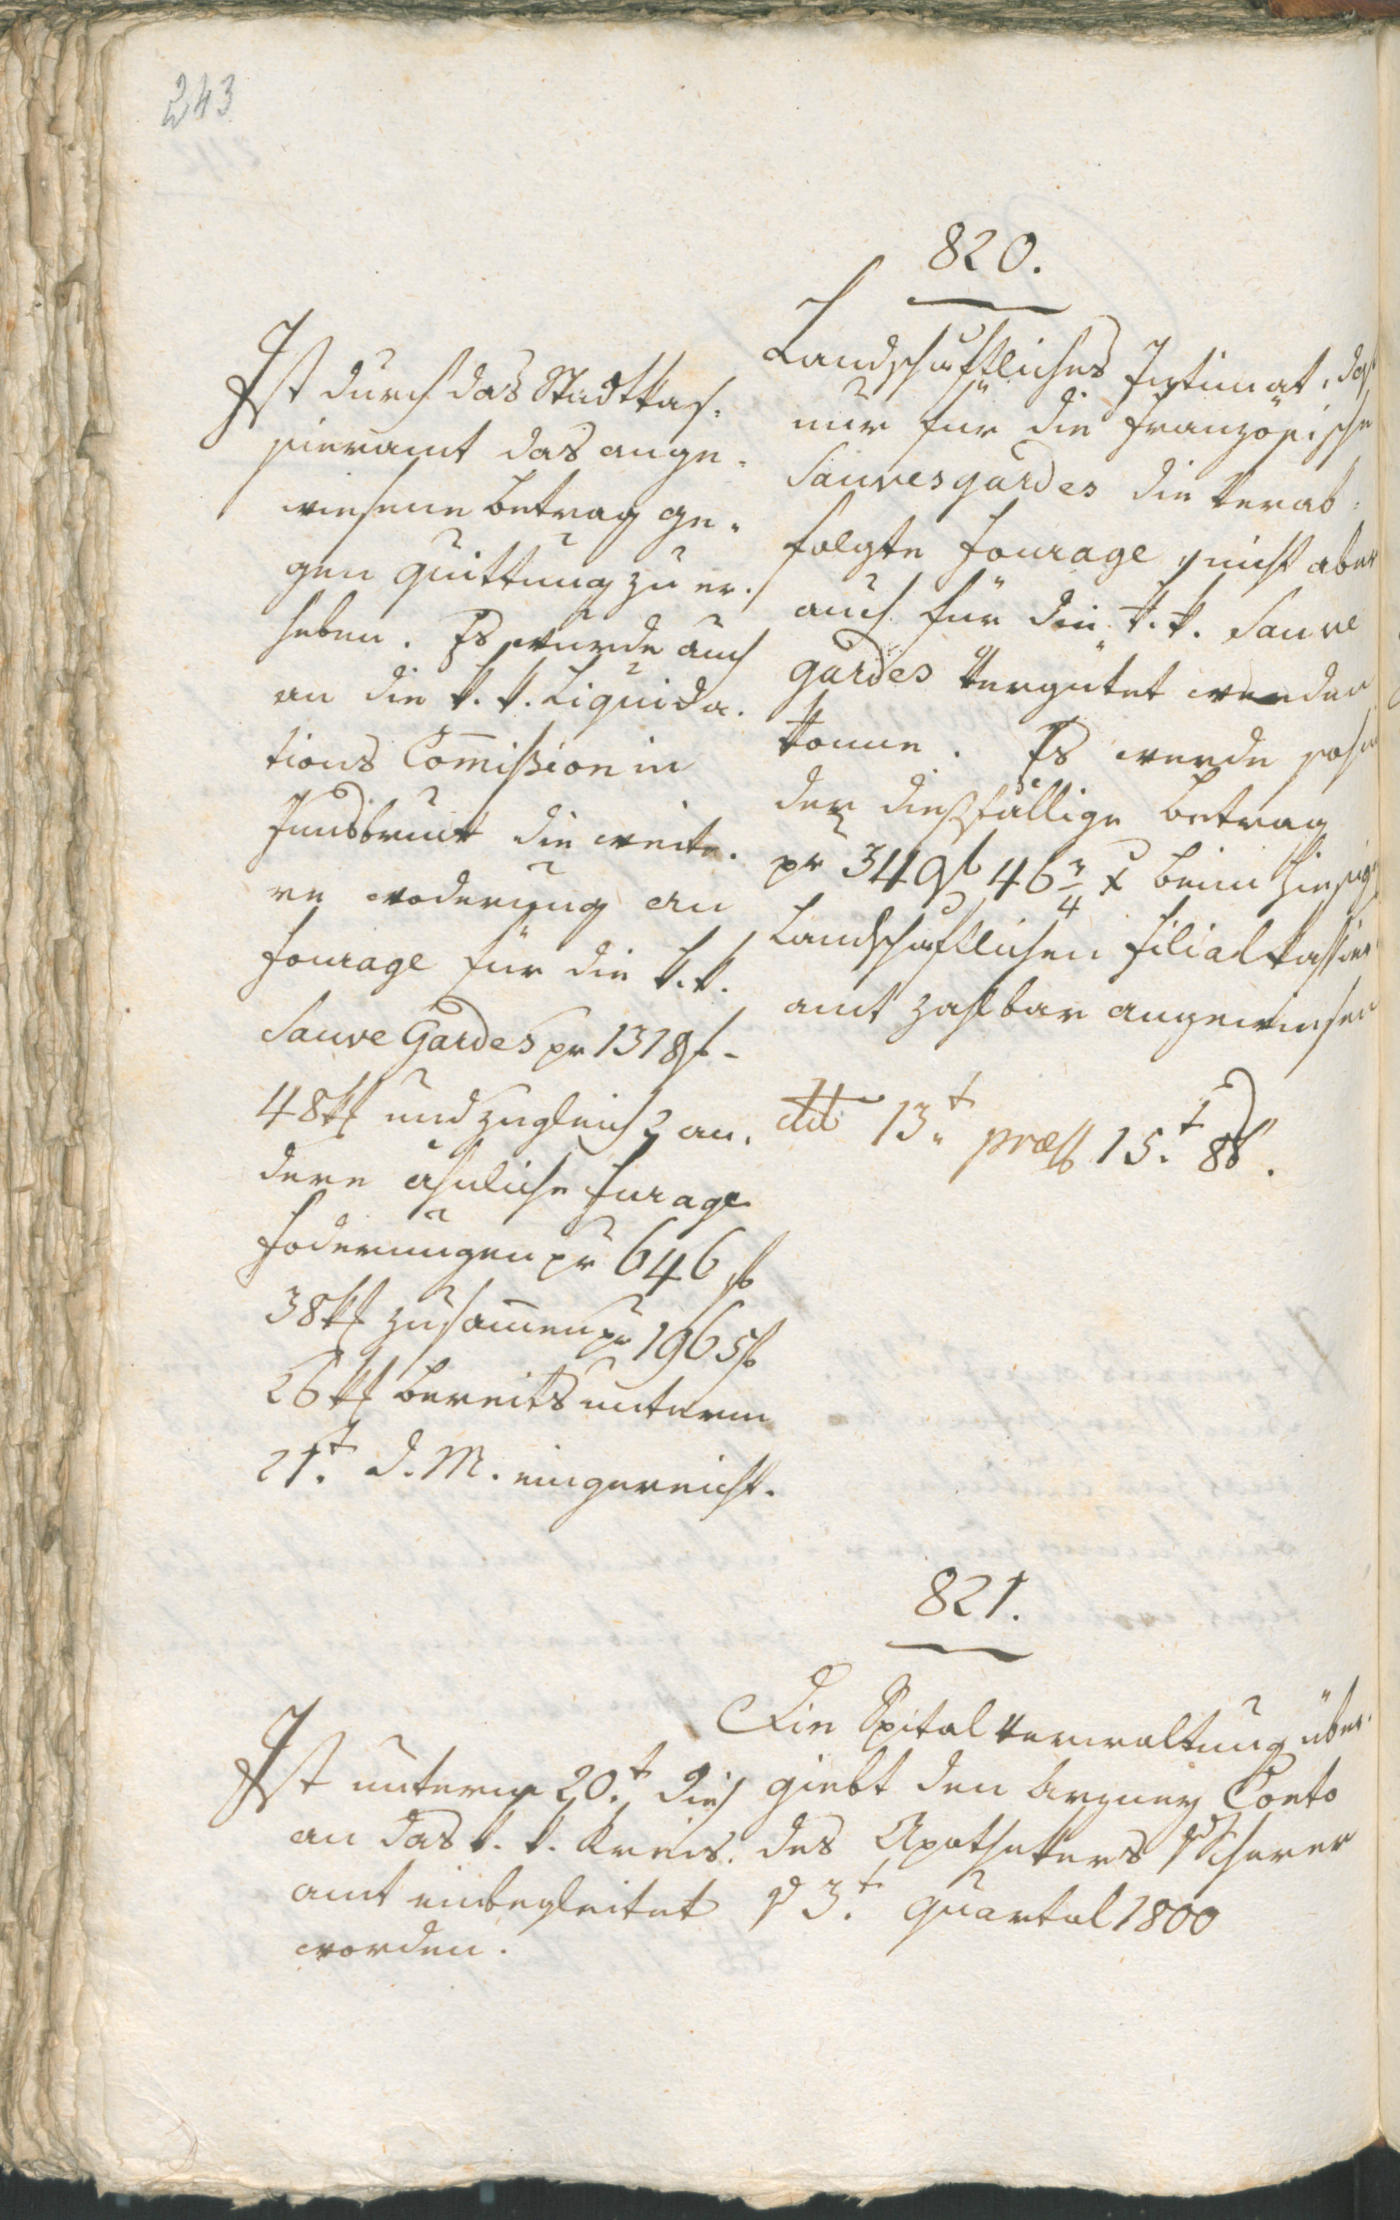 243
820.
Landschaftliches Intimat, daß
nur für die französische
Sauvesgardes die verab-
folgte Fourage, nicht aber
auch für die k. k. Sauve
gardes vergütet werden
könne. Es werde sohin
der dießfällige Betrag
pr 349 f 46 3/4 x beim hiesigen
Landschaftlichen Filialkassier
amt zahlbar angewiesen
ddo 13t praes 15t 8b.
Ist durch das Stadtkas-
sieramt das ange-
wiesene Betrag ge-
gen Quittung zu er-
heben. Es wurde auch
an die k. k. Liquida-
tions Com̅ißion in
Innsbruck die weite-
re Foderung an
Fourage für die k. k.
Sauve Gardes pr 1318 f -
48 kr und zugleich an-
dere ähnliche Furage
Foderungen pr 646 f
38 kr zusam̅en pr 1965 f
26 kr bereits unterm
21t d. M. eingereicht.
821.
Die Spital Verwaltung über-
giebt den Arzney Conto
des Apothekers Scherer
p 3t Quartal 1800
Ist unterm 20t dieß
an das k. k. Kreis-
amt einbegleitet
worden.